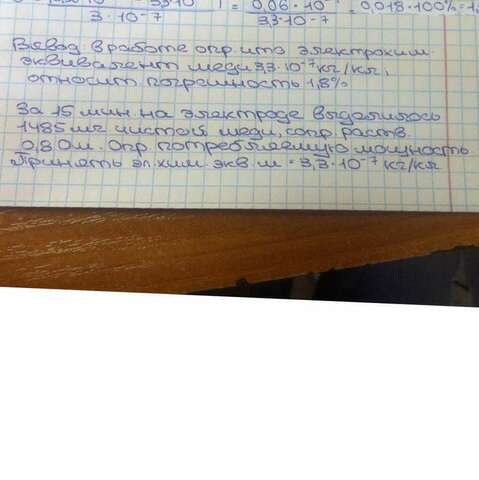 3·10⁻⁷ = 0,06·10 / 3,3·10⁻⁷ = 0,018·100% = 1,
Вывод в работе опр. что электрохим.
эквивалент меди 3,3·10⁻⁷ кг/кл,
относит погрешность 1,8%
За 15 мин. на электроде выделилось
1485 мг чистой меди, сопр. раств.
0,8 Ом. Опр потребляемую мощность.
Принять эл. хим. экв. м = 3,3·10⁻⁷ кг/кл